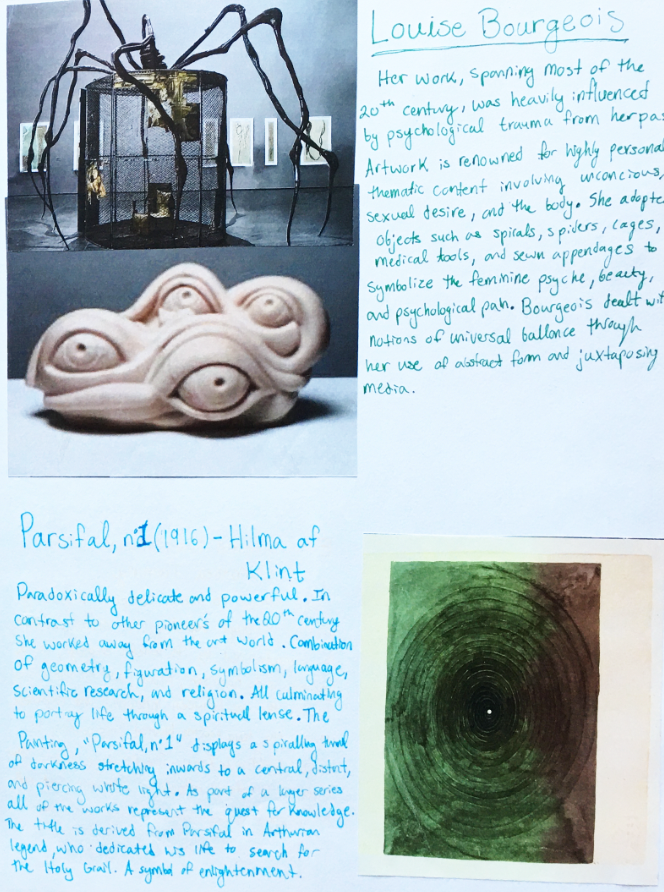 Louise Bourgeois
Her work, spanning most of the
20th century, was heavily influenced
by psychological trauma from her pas
Artwork is renowned for highly personal
thematic content involving unconcious,
sexual desire, and the body. She adopte
objects such as spirals, spiders, cages,
medical tools, and sewn appendages to
symbolize the feminine psyche, beauty,
and psychological pain. Bourgeois dealt wit
notions of universal ballance through
her use of abstract form and juxtaposing
media.
Parsifal, n°1 (1916) - Hilma af
Klint
Paradoxically delicate and powerful. In
contrast to other pioneer's of the 20th century
she worked away from the art world. Combination
of geometry, figuration, symbolism, language,
scientific research, and religion. All culminating
to portray life through a spiritual lense. The
Painting, "Parsifal, n°1" displays a spiralling tunnel
of darkness stretching inwards to a central, distinct,
and piercing white light. As part of a larger series
all of the works represent the quest for knowledge.
The title is derived from Parsifal in Arthurian
legend, who dedicated his life to search for
the Holy Grail. A symbol of enlightenment.